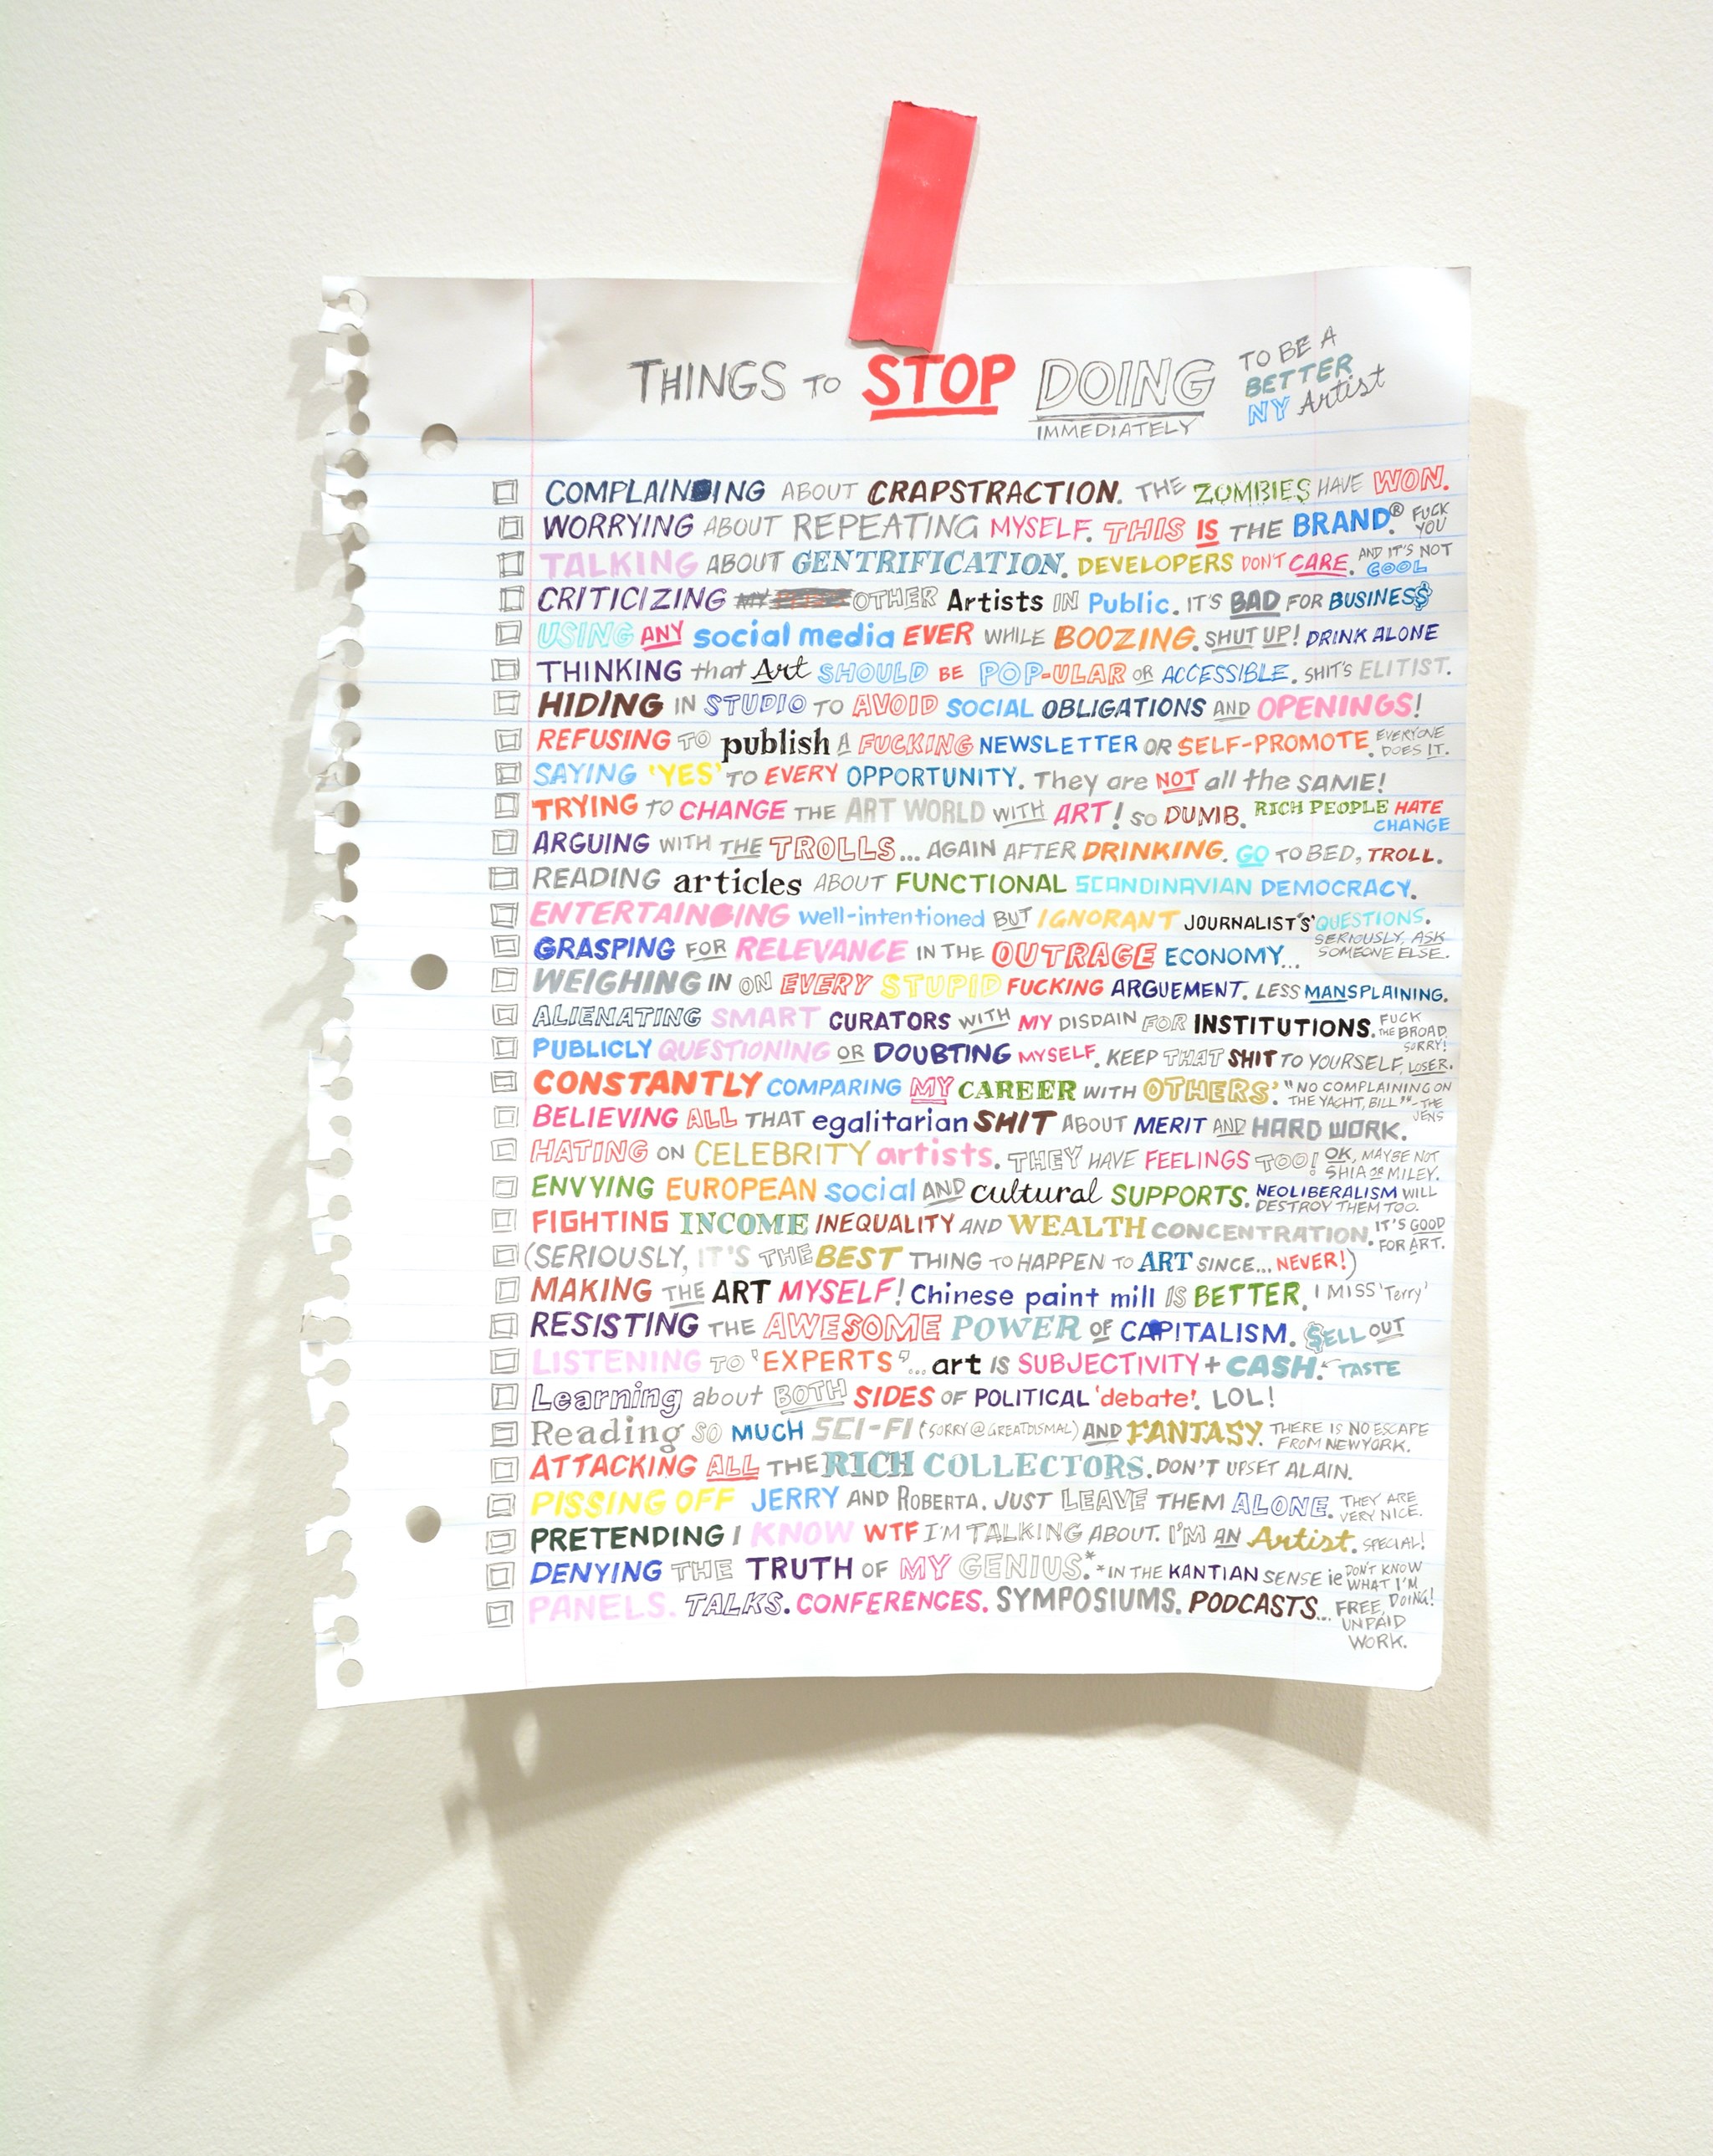 THINGS TO STOP DOING IMMEDIATELY TO BE A BETTER NY Artist
COMPLAINING ABOUT CRAPSTRACTION. THE ZOMBIES HAVE WON.
WORRYING ABOUT REPEATING MYSELF. THIS IS THE BRAND®. FUCK YOU
TALKING ABOUT GENTRIFICATION. DEVELOPERS DON'T CARE. AND IT'S NOT COOL
CRITICIZING MY OTHER Artists IN Public. IT'S BAD FOR BUSINES$
USING ANY social media EVER WHILE BOOZING. SHUT UP! DRINK ALONE
THINKING that Art SHOULD BE POP-ULAR OR ACCESSIBLE. SHIT'S ELITIST.
HIDING IN STUDIO TO AVOID SOCIAL OBLIGATIONS AND OPENINGS!
REFUSING TO publish A FUCKING NEWSLETTER OR SELF-PROMOTE. EVERYONE DOES IT.
SAYING 'YES' TO EVERY OPPORTUNITY. They are NOT all the SAME!
TRYING TO CHANGE THE ART WORLD WITH ART! SO DUMB. RICH PEOPLE HATE CHANGE
ARGUING WITH THE TROLLS... AGAIN AFTER DRINKING. GO TO BED, TROLL.
READING articles ABOUT FUNCTIONAL SCANDINAVIAN DEMOCRACY.
ENTERTAINING well-intentioned BUT IGNORANT JOURNALIST'S' QUESTIONS. SERIOUSLY, ASK SOMEONE ELSE.
GRASPING FOR RELEVANCE IN THE OUTRAGE ECONOMY...
WEIGHING IN ON EVERY STUPID FUCKING ARGUEMENT. LESS MANSPLAINING.
ALIENATING SMART CURATORS WITH MY DISDAIN FOR INSTITUTIONS. FUCK THE BROAD. SORRY!
PUBLICLY QUESTIONING OR DOUBTING MYSELF. KEEP THAT SHIT TO YOURSELF, LOSER.
CONSTANTLY COMPARING MY CAREER WITH OTHERS'. "NO COMPLAINING ON THE YACHT, BILL" - THE JENS
BELIEVING ALL THAT egalitarian SHIT ABOUT MERIT AND HARD WORK.
HATING ON CELEBRITY artists. THEY HAVE FEELINGS TOO! OK, MAYBE NOT SHIA OR MILEY.
ENVYING EUROPEAN social AND cultural SUPPORTS. NEOLIBERALISM WILL DESTROY THEM TOO.
FIGHTING INCOME INEQUALITY AND WEALTH CONCENTRATION. IT'S GOOD FOR ART.
(SERIOUSLY, IT'S THE BEST THING TO HAPPEN TO ART SINCE... NEVER!)
MAKING THE ART MYSELF! Chinese paint mill IS BETTER. I MISS 'Terry'
RESISTING THE AWESOME POWER OF CAPITALISM. $ELL OUT
LISTENING TO 'EXPERTS'... art IS SUBJECTIVITY + CASH. TASTE
Learning about BOTH SIDES OF POLITICAL 'debate'. LOL!
Reading SO MUCH SCI-FI (SORRY @GREATDISMAL) AND FANTASY. THERE IS NO ESCAPE FROM NEW YORK.
ATTACKING ALL THE RICH COLLECTORS. DON'T UPSET ALAIN.
PISSING OFF JERRY AND ROBERTA. JUST LEAVE THEM ALONE. THEY ARE VERY NICE.
PRETENDING I KNOW WTF I'M TALKING ABOUT. I'M AN Artist. SPECIAL!
DENYING THE TRUTH OF MY GENIUS.* *IN THE KANTIAN SENSE ie DON'T KNOW WHAT I'M DOING!
PANELS. TALKS. CONFERENCES. SYMPOSIUMS. PODCASTS... FREE, UNPAID WORK.